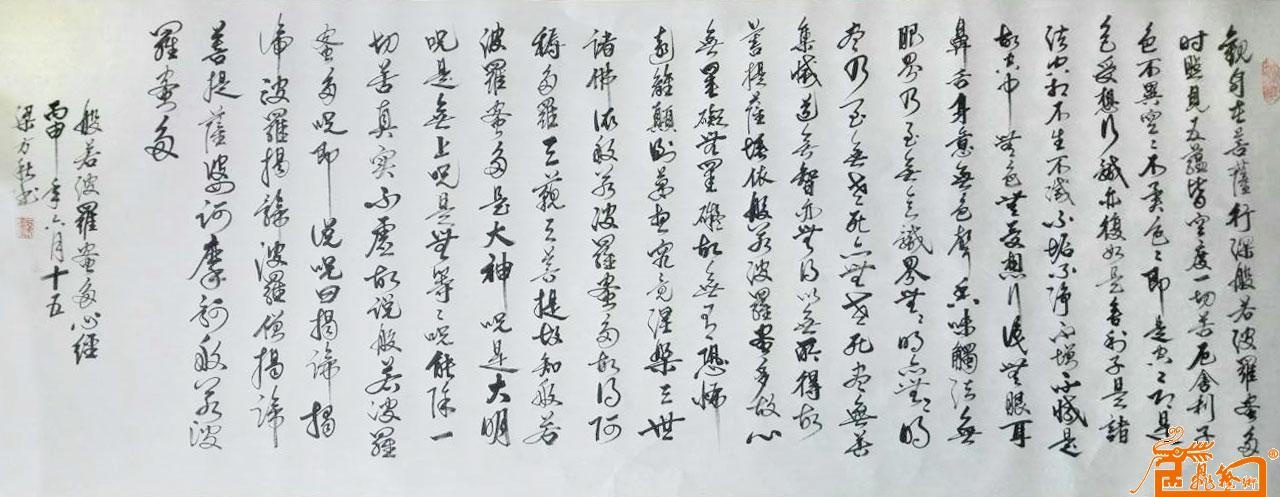 觀自在菩薩行深般若波羅蜜多
时照見五蘊皆空度一切苦厄舍利子
色不異空〻不異色〻即是空〻即是
色受想行識亦復如是舍利子是諸
法空相不生不滅不垢不淨不增不減是
故空中無色無受想行識無眼耳
鼻舌身意無色聲香味觸法無
眼界乃至無意識界無〻明亦無〻明
盡乃至無老死亦無老死盡無苦
集滅道無智亦無得以無所得故
菩提薩埵依般若波羅蜜多故心
無罣礙無罣礙故無有恐怖
遠離顛倒夢想究竟涅槃三世
諸佛依般若波羅蜜多故得阿
耨多羅三藐三菩提故知般若
波羅蜜多是大神呪是大明
呪是無上呪是無等〻呪能除一
切苦真实不虛故说般若波羅
蜜多呪即说呪曰揭諦揭
諦波羅揭諦波羅僧揭諦
菩提薩婆訶摩訶般若波
羅蜜多
般若波羅蜜多心經
丙申年六月十五
梁万秋书